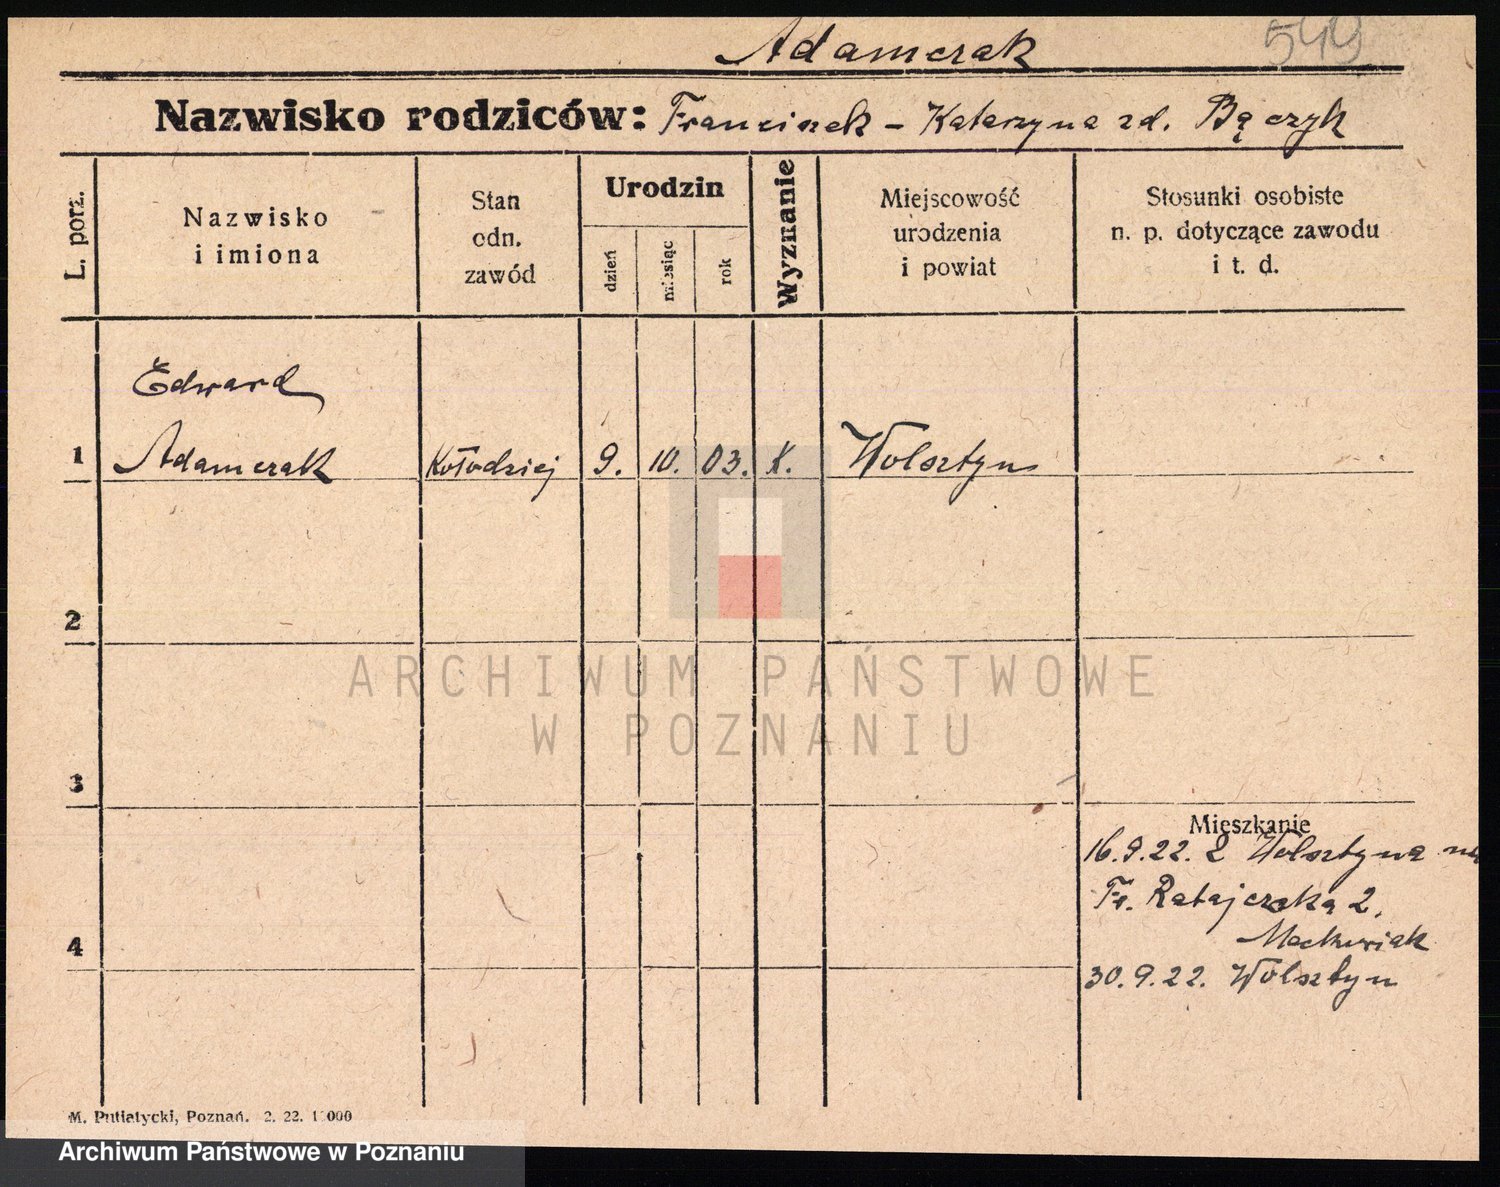 Adamczak 549
Nazwisko rodziców: Franciszek - Katarzyna zd. Bączyk
L. porz.
Nazwisko
i imiona
Stan
odn.
zawód
Urodzin
dzień
miesiąc
rok
Wyznanie
Miejscowość
urodzenia
i powiat
Stosunki osobiste
n. p. dotyczące zawodu
i t. d.
Edward
1 Adamczak Kołodziej 9. 10. 03. K. Wolsztyn
2
ARCHIWUM PAŃSTWOWE
W POZNANIU
3
Mieszkanie
16.9.22. z Wolsztyna na
Fr. Ratajczaka 2,
Maćkowiak
4
30.9.22. Wolsztyn
M. Putiatycki, Poznań. 2. 22.
Archiwum Państwowe w Poznaniu